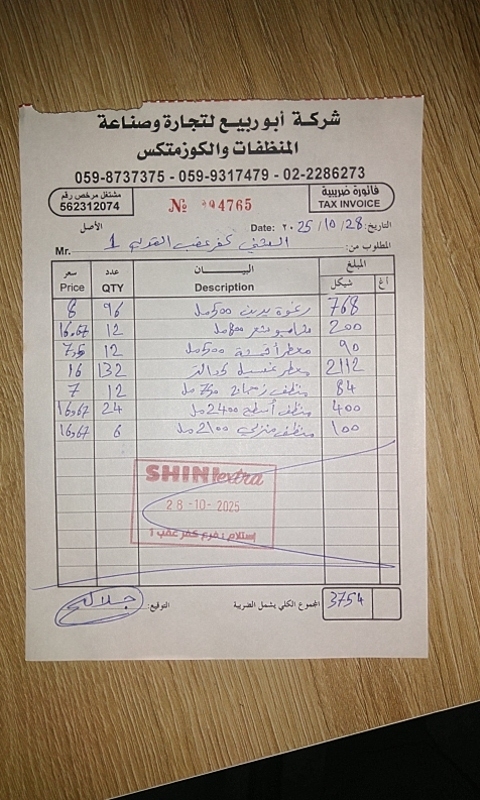 شركة أبو ربيع لتجارة وصناعة
المنظفات والكوزمتكس
059-8737375 - 059-9317479 - 02-2286273
مشتغل مرخص رقم
562312074
№ 4765
فاتورة ضريبية
TAX INVOICE
الأصل
Date: ٢٠25/10/28 التاريخ:
المطلوب من: كفر عقب 1 Mr.
سعر Price عدد QTY البيــــان Description المبلغ شيكل أغ
8 96 500 مل 768
16.67 12 شامبو شعر 800 مل 200
7.5 12 معطر أقمشة 500 مل 90
16 132 معطر غسيل 2112
7 12 منظف 750 مل 84
16,67 24 منظف أسطح 2400 مل 400
16,67 6 منظف منزلي 2100 مل 100
SHINI extra
28-10-2025
إستلام : فرع كفر عقب 1
التوقيع: المجموع الكلي يشمل الضريبة 3754